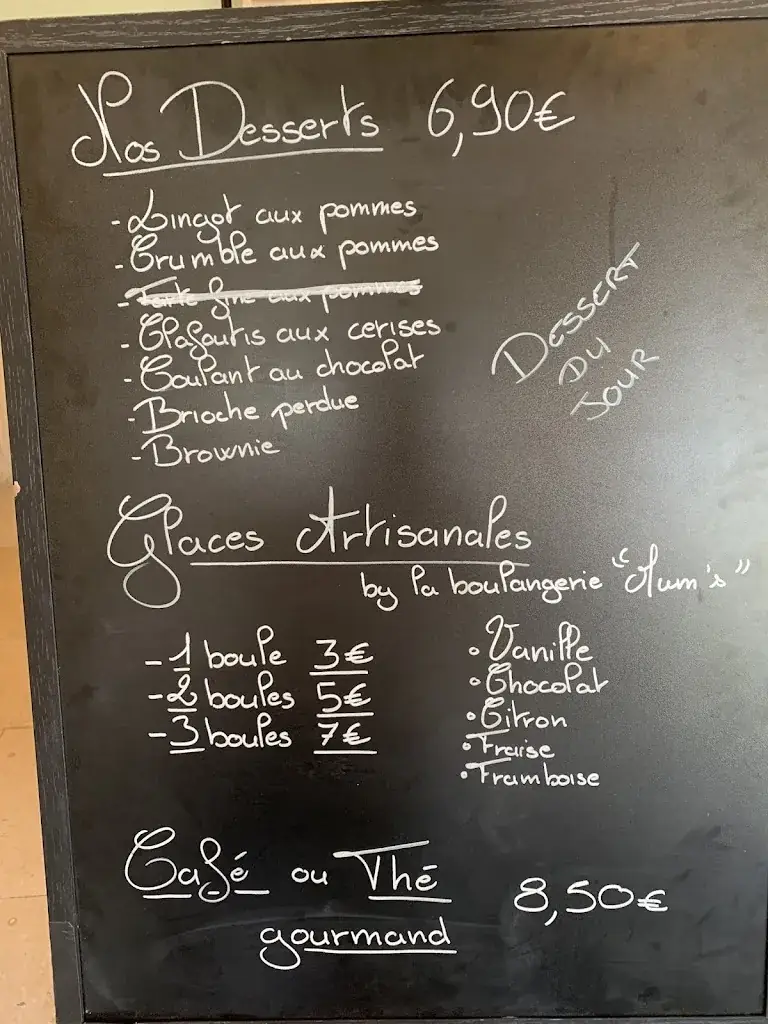 Nos Desserts 6,90€
- Lingot aux pommes
- Crumble aux pommes
- Tarte fine aux pommes
- Clafoutis aux cerises
- Coulant au chocolat
- Brioche perdue
- Brownie
DESSERT
DU
JOUR
Glaces Artisanales
by la boulangerie "Mum's"
- 1 boule 3€
- 2 boules 5€
- 3 boules 7€
• Vanille
• Chocolat
• Citron
• Fraise
• Framboise
Café ou Thé
gourmand
8,50€